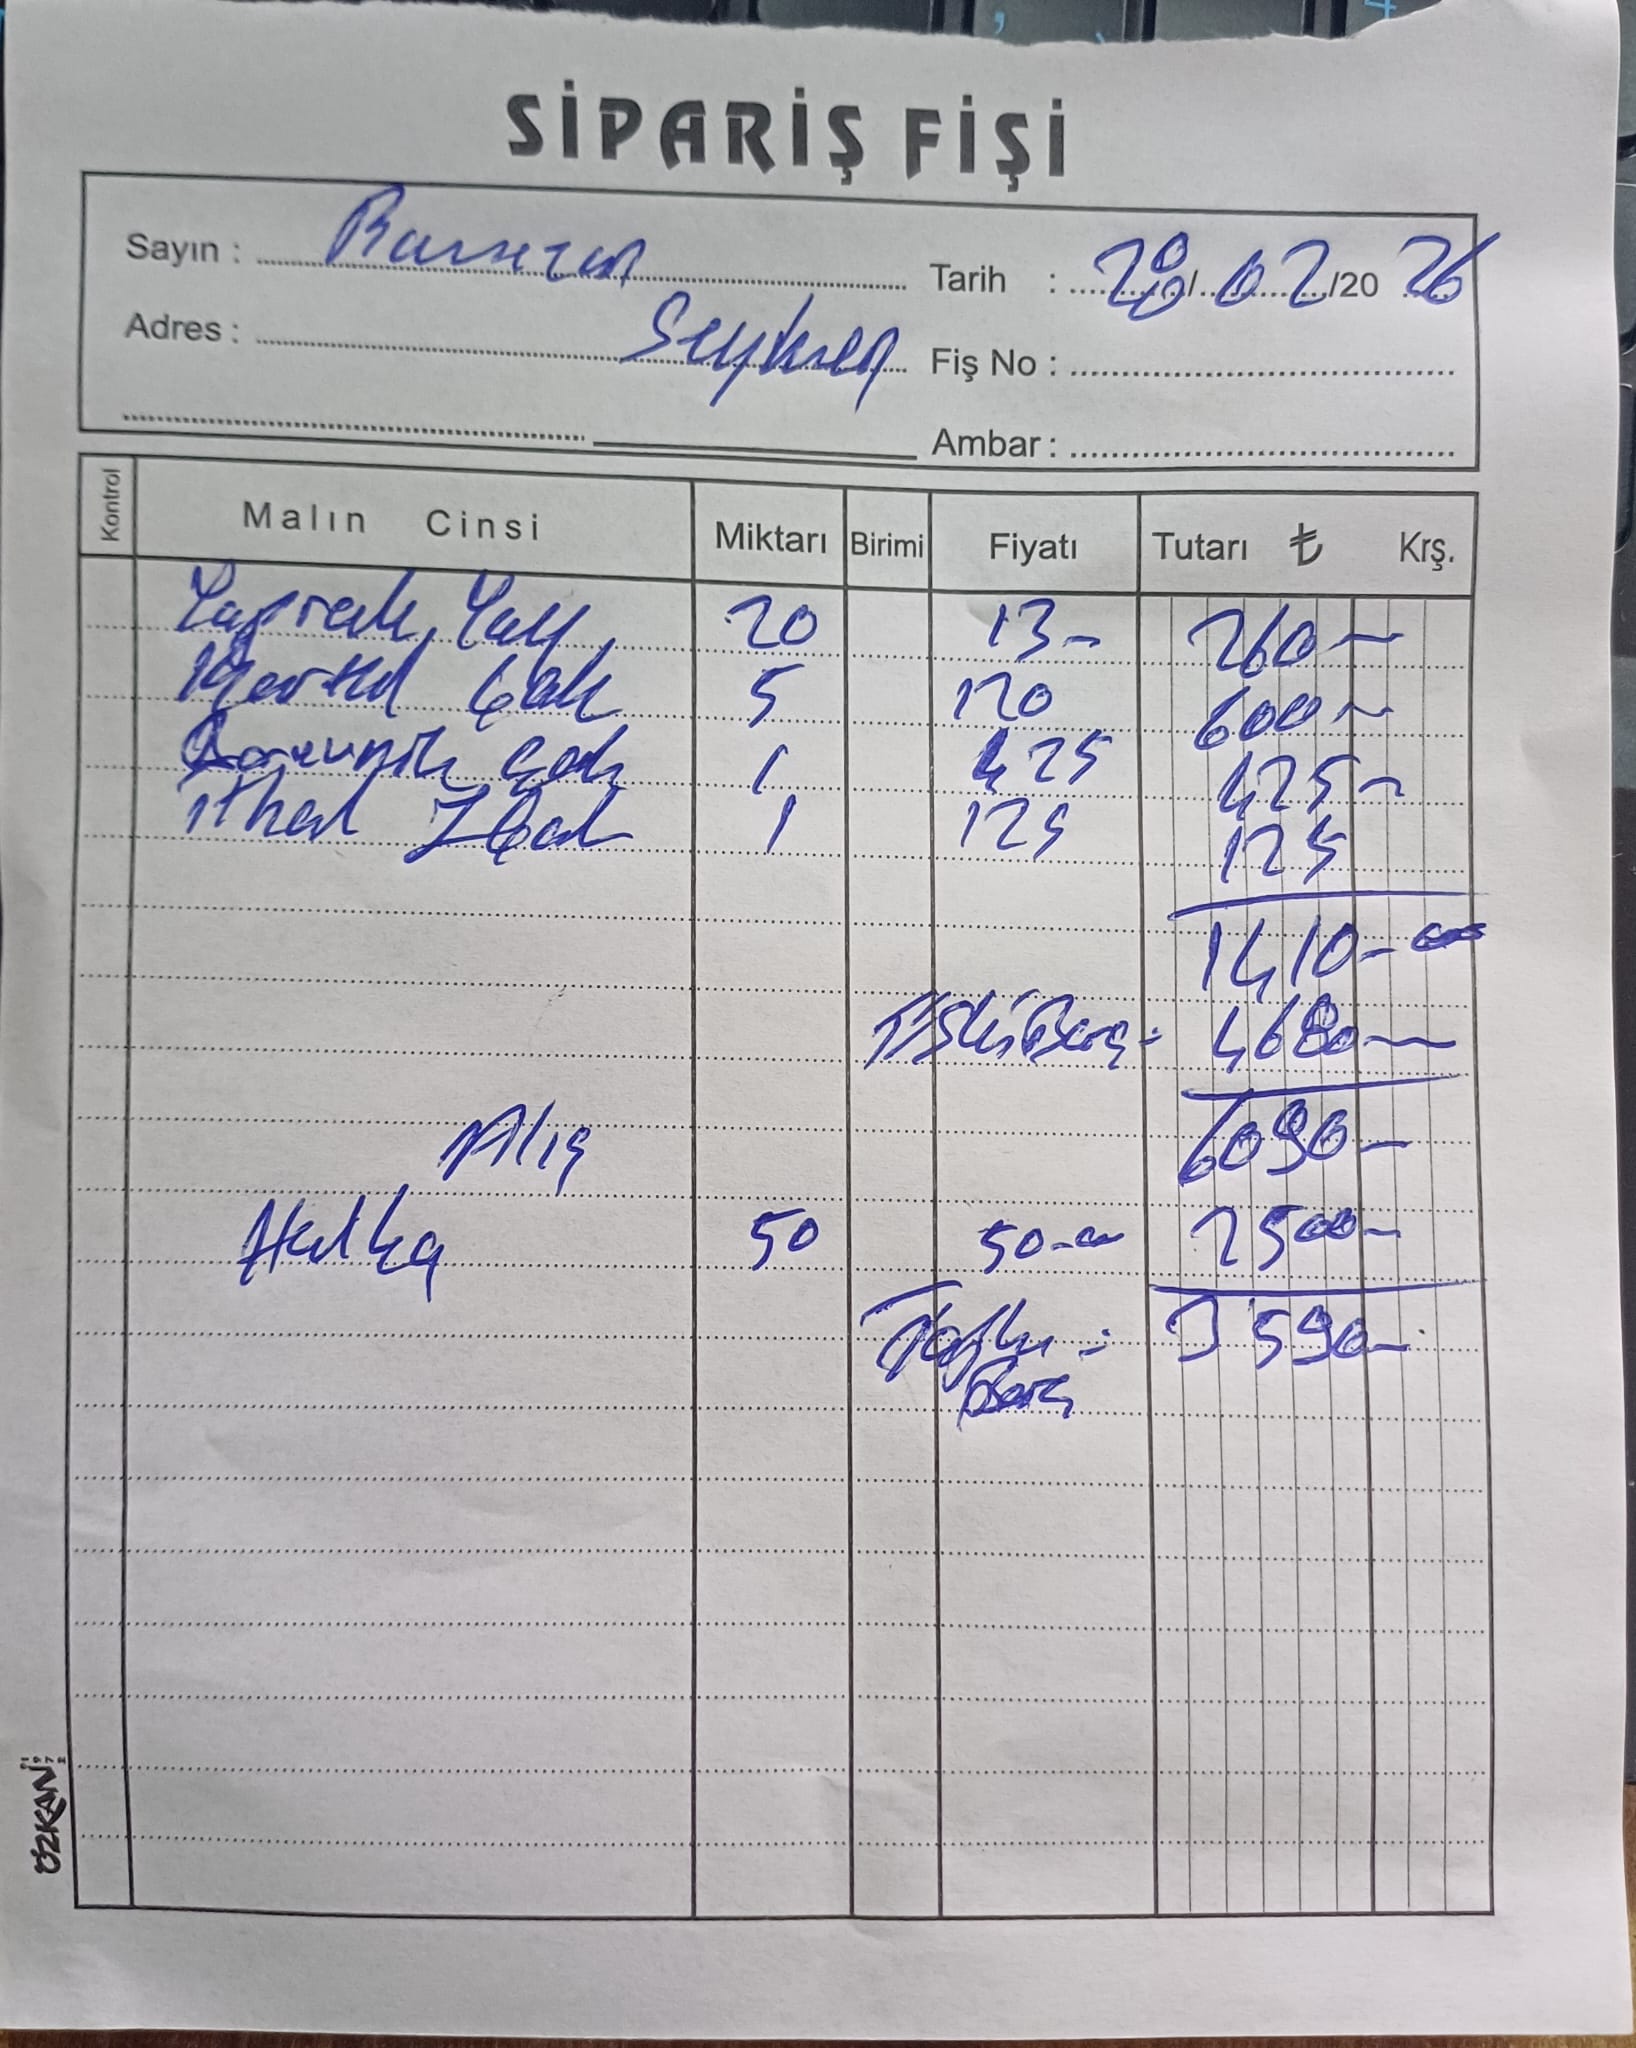 SİPARİŞ FİŞİ
Sayın : Ramazan
Tarih : 28/02/2026
Adres : Seyhan
Fiş No :
Ambar :
Kontrol Malın Cinsi Miktarı Birimi Fiyatı Tutarı ₺ Krş.
Yaprak 20 13- 260-
5 120 600-
1 425 425-
ithal 1 125 125
1410-
Eski Borç = 4680-
6090-
Alış
Halka 50 50-00 2500-
Toplu = 3590-
Borç
ÖZKAN 1972